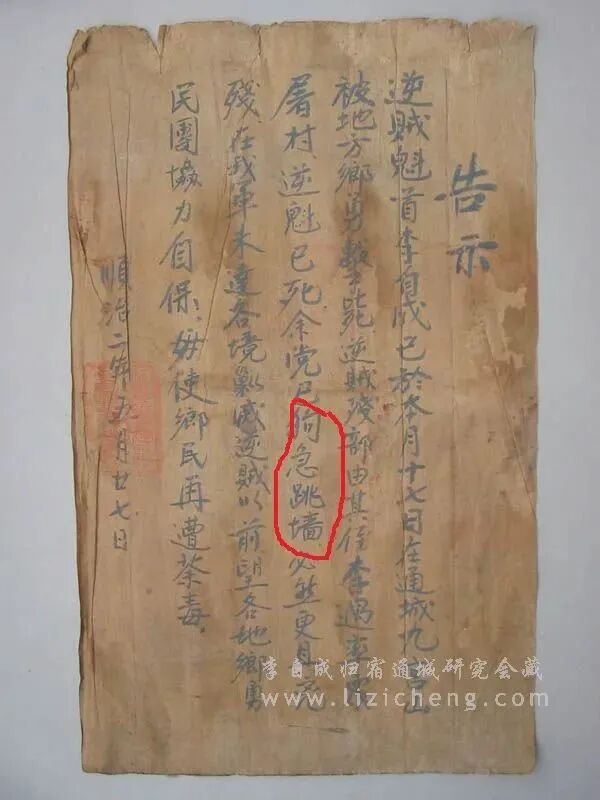 告示
逆贼魁首李自成已於本月十七日在通城九宫山
被地方鄉勇擊毙逆贼残部由其侄李過率
屠村逆魁已死余党已狗急跳墙必然更且
殘在我軍未達各境剿滅逆贼以前望各地鄉勇
民團協力自保,毋使鄉民再遭荼毒。
順治二年五月廿七日
李自成归宿通城研究会藏
www.lizicheng.com